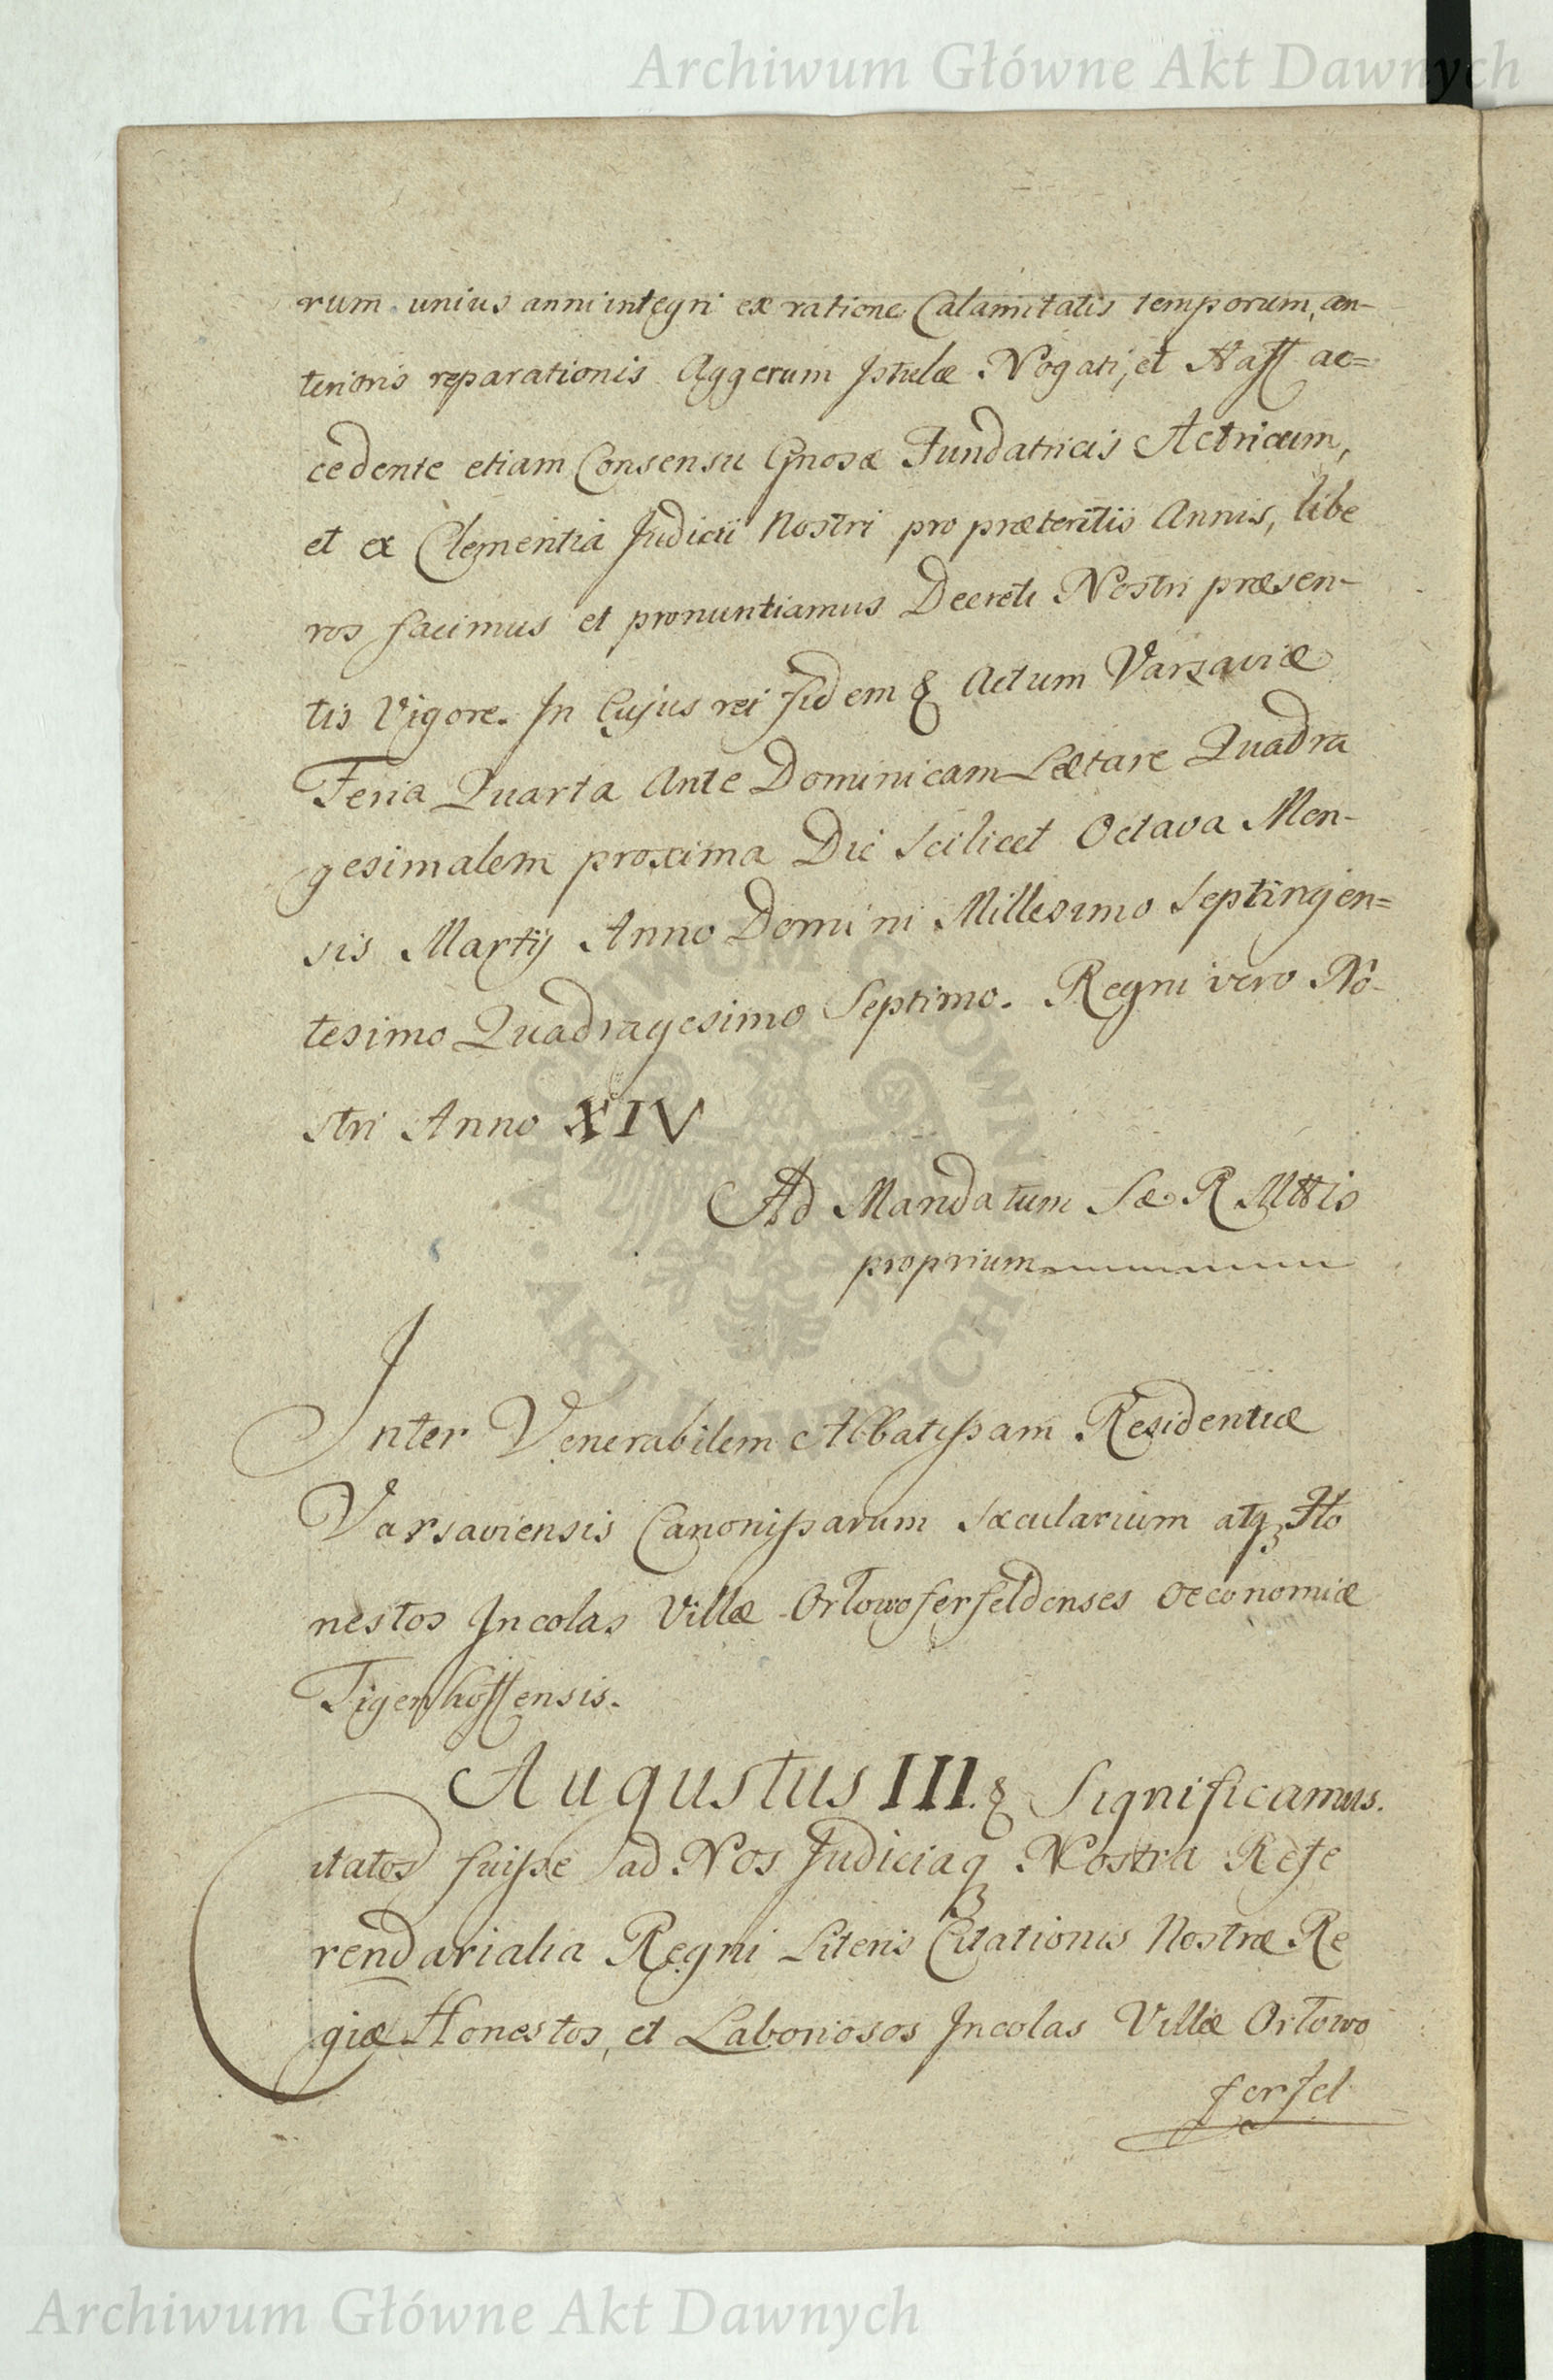 Archiwum Główne Akt Dawnych
rum unius anni integri ex ratione Calamitatis temporum, an-
terioris reparationis Aggerum Istulæ Nogati, et Haff ac=
cedente etiam Consensu Gnosæ Fundatricis Actricum,
et ex Clementia Judicii Nostri pro præteritis Annis, libe
ros facimus et pronuntiamus Decreti Nostri præsen-
tis Vigore. In Cujus rei fidem & Actum Varsaviæ
Feria Quarta Ante Dominicam Lætare Quadra
gesimalem proxima Die Scilicet Octava Men-
sis Martij Anno Domini Millesimo Septingen=
tesimo Quadragesimo Septimo. Regni vero No-
stri Anno XIV
Ad Mandatum Sæ R Mttis
proprium
Inter Venerabilem Abbatissam Residentiæ
Varsaviensis Canonissarum Sæcularium atq Ho
nestos Incolas Villæ Orłowoferfeldenses Oeconomiæ
Tigenhoffensis.
Augustus III. & Significamus.
Citatos fuisse ad Nos Judiciaq Nostra Refe
rendarialia Regni Literis Citationis Nostræ Re
giæ Honestos, et Laboriosos Incolas Villæ Orłowo
ferfel
ARCHIWUM GŁÓWNE AKT DAWNYCH
Archiwum Główne Akt Dawnych